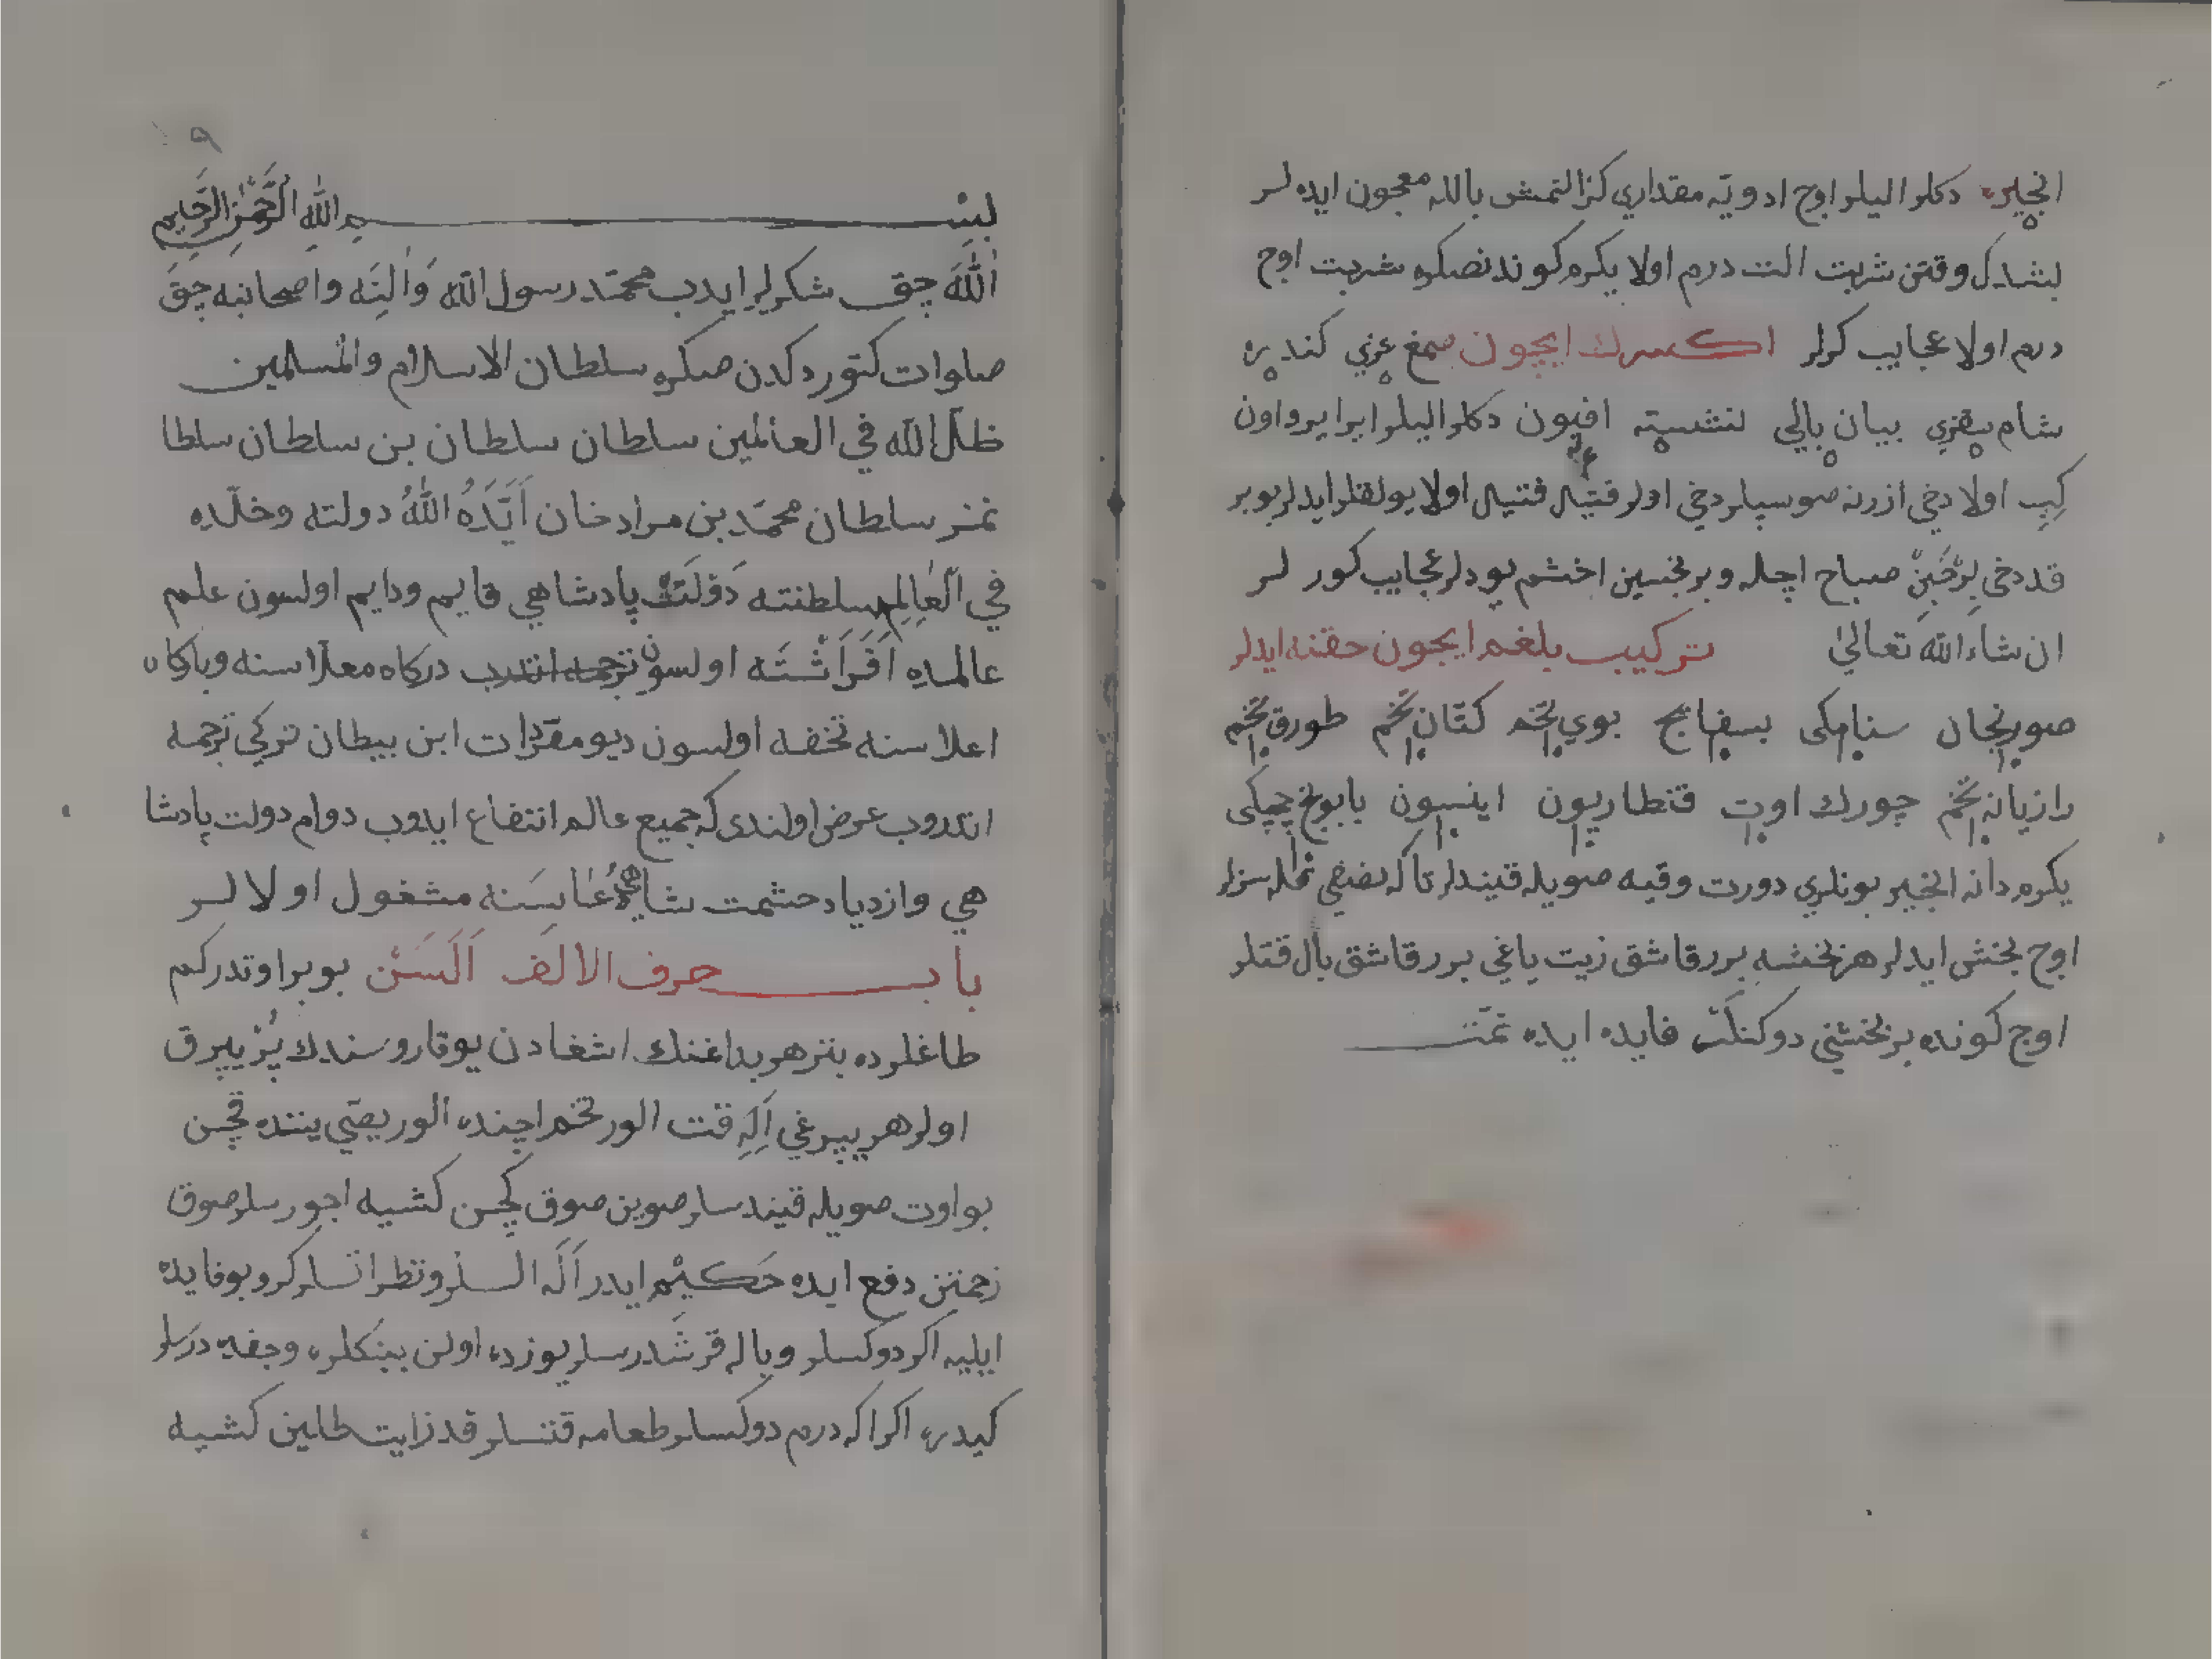 انجیره دكلو اليلو اوج ادويه مقداری كزالنمش بالله معجون ايده لر
بشدك وقتن شربت الت درم اولا يكرم كوندنصكره شربت اوج
درم اولا عجايب كرلر اكسرك ايچون صمغ عربي كندره
شام سقزي بيان بالي نشسته افيون دكلو اليلو برابر دوان
كب اولا دخي ازرنه صو سپلر دخي اولر فتيل فتيل اولا يولقلر ايدلر بو بر
قددخي بر خبن صباح اچله و بر نخسين اخشم يودلر عجايب كورلر
ان شاء الله تعالى تركيب بلغم ايچون حقنه ايدلر
صورنجان سنامكى بسفايج بوي تخم كتان تخم طورق تخم
رازيانه تخم چورك اوت قنطاريون اينسون بابونج چچكى
يكرم دانه انجير بونلري دورت وقيه صويله قيندلر تا كه نصفي قاله سزلر
اوج بخش ايدلر هر بخشه بر قاشق زيت ياغي بر قاشق بال قتلر
اوج كونده بر بخشني دوكنلت فايده ايده تمت
٩
بسم الله الرحمن الرحيم
الله چق شكرلر ايدب محمد رسول الله و النه واصحابنه چق
صلوات كتوردكدن صكره سلطان الاسلام والمسلمين
ظل الله في العالمين سلطان سلطان بن سلطان سلطا
نمز سلطان محمد بن مراد خان ايده الله دولته وخلده
في العالم سلطنته دولت پادشاهي قايم ودايم اولسون علم
عالمده افراشته اولسون ترجمه اتدرب دركاه معلاسنه وباركاه
اعلاسنه تحفه اولسون ديو مفردات ابن بيطان تركي ترجمه
اتدروب عرض اولندى كه جميع عالم انتفاع ايدوب دوام دولت پادشا
هي وازدياد حشمت شاهي دعاسنه مشغول اولالر
باب حرف الالف السن بو بر اوتدر كم
طاغلرده بتر هر بداغنك اشغادن يوقارو سندك يز يپرق
اولر هر يپرغي اله قت الور تخم اچنده الور يصي يننده قچن
بو اوت صويله قيندسلر صوين صوق كچن كشيه اچورسلر صوق
زحمتن دفع ايده حكيم ايدر اله السلر و نظر اتسلر كرو بو فايده
ايليه اكر دوكسلر و باله قرشدرسلر يوزده اولن بينكلره وجفه درسلر
كيدره اكر اكه درم دوكسلر طعامه قتسلر قدز ايت طلين كشيه